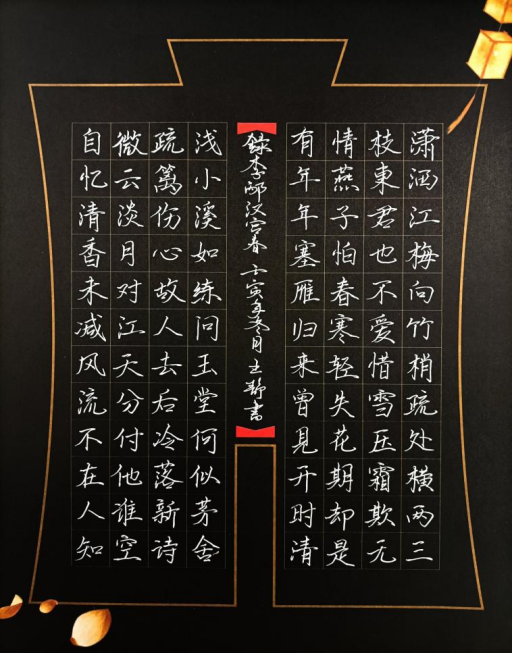 潇洒江梅向竹梢疏处横两三
枝東君也不爱惜雪压霜欺无
情燕子怕春寒轻失花期却是
有年年塞雁归来曾见开时清
録李邴汉宫春 壬寅冬月 王静書
浅小溪如练问玉堂何似茅舍
疏篱伤心故人去后冷落新诗
微云淡月对江天分付他谁空
自忆清香未减风流不在人知